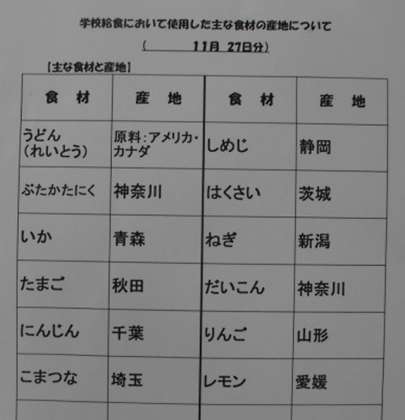 学校給食において使用した主な食材の産地について
(　　　11月 27日分)
【主な食材と産地】
食　材　産　地　食　材　産　地
うどん
(れいとう)
原料:アメリカ・
カナダ
しめじ　静岡
ぶたかたにく　神奈川　はくさい　茨城
いか　青森　ねぎ　新潟
たまご　秋田　だいこん　神奈川
にんじん　千葉　りんご　山形
こまつな　埼玉　レモン　愛媛